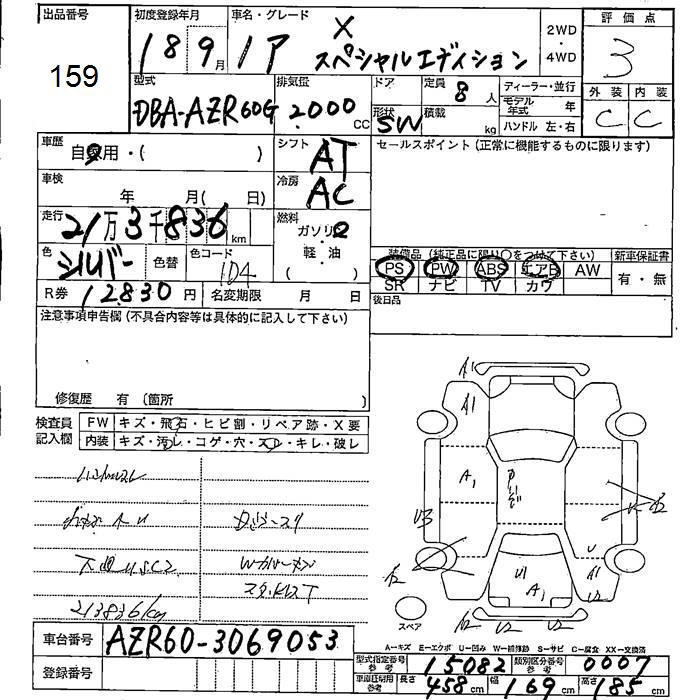 出品番号 初度登録年月 車名・グレード 評価点
159
18 9月 1P X スペシャルエディション
2WD・4WD
3
型式 排気量 ドア 定員 ディーラー・並行 外装 内装
DBA-AZR60G 2000CC 8人 モデル年式 年 C C
形状 SW 積載 kg ハンドル 左・右
車歴 シフト セールスポイント(正常に機能するものに限ります)
自家用・( ) AT
車検 冷房
年 月( 日) AC
走行 燃料
21万3千836km ガソリン・軽・油( )
色 シルバー 色替 色コード 1D4
装備品(純正品に限り○をつけて下さい) 新車保証書
PS PW ABS エアB AW 有・無
SR ナビ TV カワ
R券 12830円 名変期限 月 日 後日品
注意事項申告欄(不具合内容等は具体的に記入して下さい)
修復歴 有(箇所 )
検査員記入欄 FW キズ・飛石・ヒビ割・リペア跡・X要
内装 キズ・汚レ・コゲ・穴・スレ・キレ・破レ
下廻りUSC2
213836km
A1
A1
A1
U3
U1
A1
A1
U
U2
スペア
車台番号 AZR60-3069053
登録番号
A-キズ E-エクボ U-凹み W-補修跡 S-サビ C-腐食 XX-交換済
型式指定番号 参考 15082 類別区分番号 参考 0007
車庫証明用 参考 長さ 458cm 幅 169cm 高さ 185cm